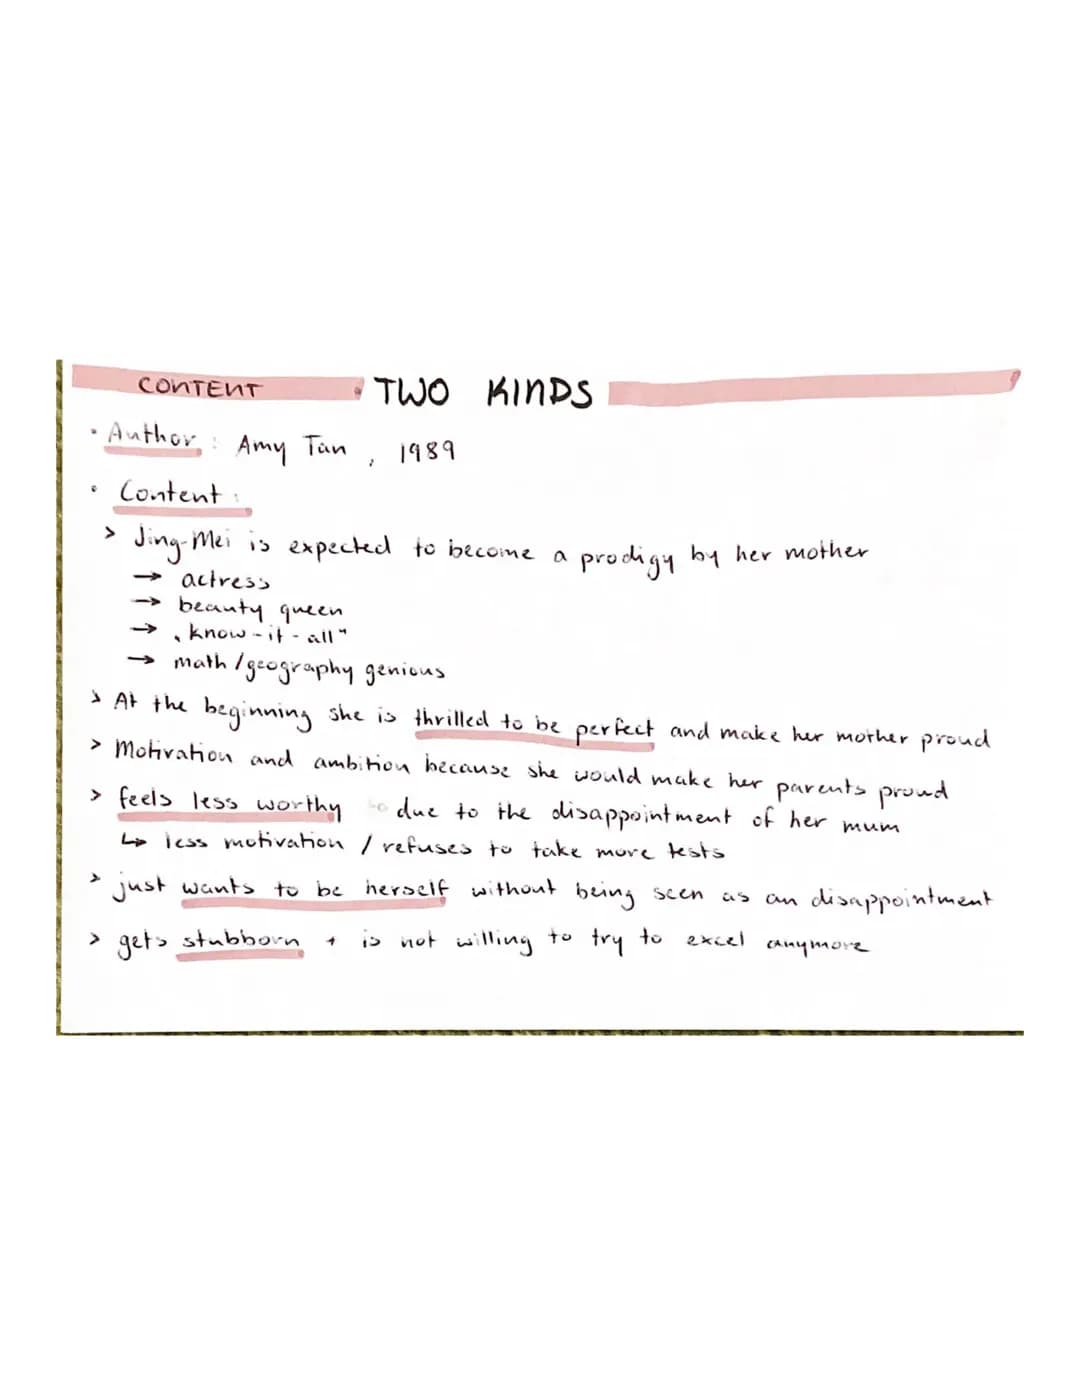 CONTENT TWO KINDS
• Author : Amy Tan , 1989
• Content :
> Jing-Mei is expected to become a prodigy by her mother
→ actress
→ beauty queen
→ „know-it-all“
→ math/geography genious
> At the beginning she is thrilled to be perfect and make her mother proud
> Motivation and ambition because she would make her parents proud
> feels less worthy due to the disappointment of her mum
↳ less motivation / refuses to take more tests
> just wants to be herself without being seen as an disappointment
> gets stubborn + is not willing to try to excel anymore